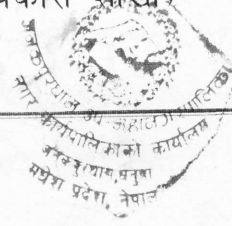 जनकपुरधाम उप महानगरपालिका
नगर कार्यपालिकाको कार्यालय
जनकपुरधाम, धनुषा
मधेश प्रदेश, नेपाल